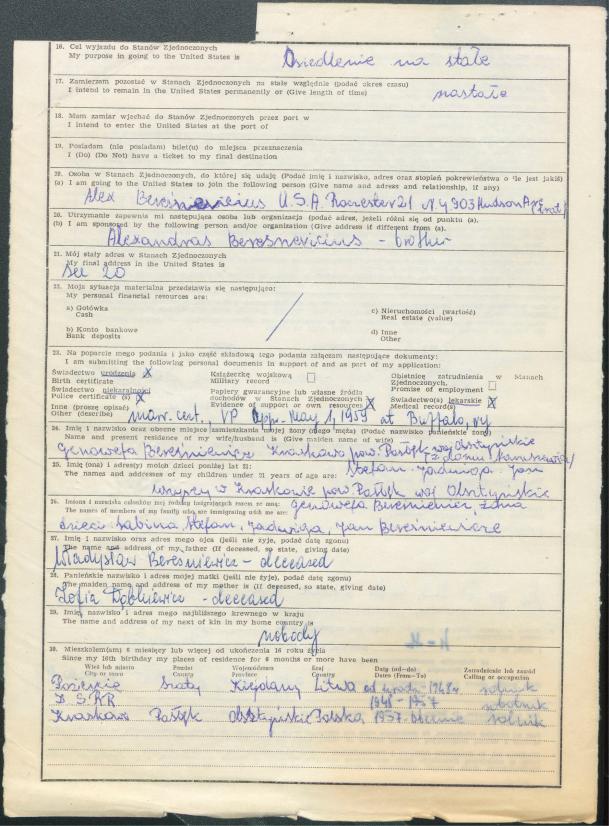 16. Cel wyjazdu do Stanów Zjednoczonych
My purpose in going to the United States is
Osiedlenie na stałe
17. Zamierzam pozostać w Stanach Zjednoczonych na stałe względnie (podać okres czasu)
I intend to remain in the United States permanently or (Give length of time)
nastałe
18. Mam zamiar wjechać do Stanów Zjednoczonych przez port w
I intend to enter the United States at the port of
19. Posiadam (nie posiadam) bilet(u) do miejsca przeznaczenia
I (Do) (Do Not) have a ticket to my final destination
20. Osoba w Stanach Zjednoczonych, do której się udaję (Podać imię i nazwisko, adres oraz stopień pokrewieństwa o ile jest jakiś)
(a) I am going to the United States to join the following person (Give name and address and relationship, if any)
Alex Beresniewicius U.S.A. Rochester 21 N.Y 903 Hudson Ave (brat)
20. Utrzymanie zapewnia mi następująca osoba lub organizacja (podać adres, jeżeli różni się od punktu (a).
(b) I am sponsored by the following person and/or organization (Give address if different from (a).
Alexandras Beresnevicius - brother
21. Mój stały adres w Stanach Zjednoczonych
My final address in the United States is
see 20
22. Moja sytuacja materialna przedstawia się następująco:
My personal financial resources are:
a) Gotówka
Cash
c) Nieruchomości (wartość)
Real estate (value)
b) Konto bankowe
Bank deposits
d) Inne
Other
23. Na poparcie mego podania i jako część składową tego podania załączam następujące dokumenty:
I am submitting the following personal documents in support of and as part of my application:
Świadectwo urodzenia X
Birth certificate
Książeczkę wojskową
Military record
Obietnicę zatrudnienia w Stanach
Zjednoczonych,
Promise of employment
Świadectwo niekaralności
Police certificate (s) X
Papiery gwarancyjne lub własne źródła
dochodów w Stanach Zjednoczonych
Evidence of support or own resources X
Świadectwo(a) lekarskie X
Medical record(s)
Inne (proszę opisać)
Other (describe)
marr. cert., VP App. May 1, 1959 at Buffalo, NY
24. Imię i nazwisko oraz obecne miejsce zamieszkania mojej żony (mego męża) (Podać nazwisko panieńskie żony)
Name and present residence of my wife/husband is (Give maiden name of wife)
Genowefa Bereśniewicz Kraskowo pow. Pasłęk woj olsztyńskie
25. Imię (ona) i adres(y) moich dzieci poniżej lat 21:
The names and addresses of my children under 21 years of age are:
Stefan, Jadwiga, Jan
wszyscy w Kraskowie pow. Pasłęk woj Olsztyńskie
26. Imiona i nazwiska członków mej rodziny imigrujących razem ze mną:
The names of members of my family who are immigrating with me are:
Genowefa Bereśniewicz, żona
dzieci: Sabina, Stefan, Jadwiga, Jan Bereśniewicze
27. Imię i nazwisko oraz adres mego ojca (jeśli nie żyje, podać datę zgonu)
The name and address of my father (If deceased, so state, giving date)
Władysław Bereśniewicz - deceased
28. Panieńskie nazwisko i adres mojej matki (jeśli nie żyje), podać datę zgonu)
The maiden name and address of my mother is (If deceased, so state, giving date)
Zofia - deceased
29. Imię, nazwisko i adres mego najbliższego krewnego w kraju
The name and address of my next of kin in my home country is
nobody
30. Mieszkałem(am) 6 miesięcy lub więcej od ukończenia 16 roku życia
Since my 16th birthday my places of residence for 6 months or more have been
Wieś lub miasto Powiat Województwo Kraj Daty (od—do) Zatrudnienie lub zawód
City or town County Province Country Dates (From—To) Calling or occupation
Kiejdany Litwa od urodz.-1948r rolnik
Z.S.R.R 1948 - 1957 robotnik
Kraskowo Pasłęk olsztyńskie Polska 1957-obecnie rolnik